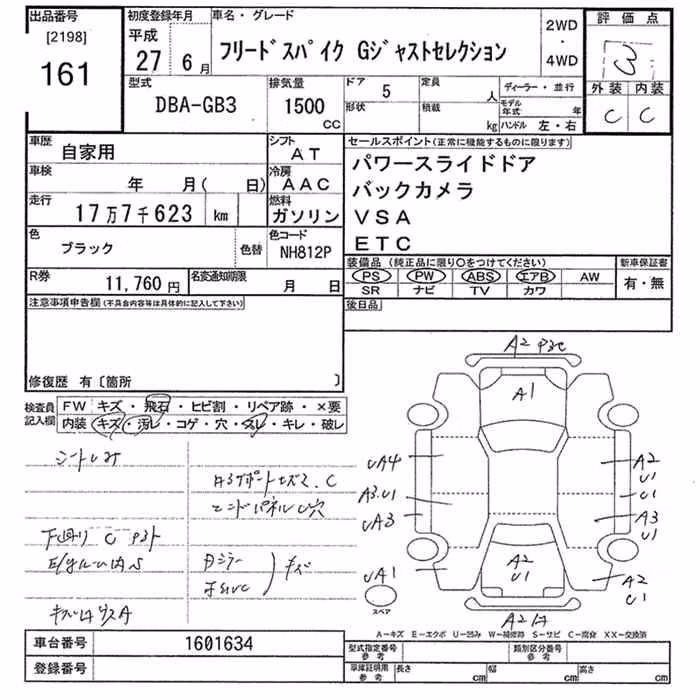 出品番号
[2198]
161
初度登録年月
平成
27年 6月
車名・グレード
フリードスパイク Gジャストセレクション
2WD
・
4WD
評価点
3
外装 内装
C C
型式
DBA-GB3
排気量
1500
CC
ドア 5
形状
定員 人
積載 kg
ディーラー・並行
モデル年式 年
ハンドル 左・右
車歴
自家用
シフト
AT
車検
年 月( 日)
冷房
AAC
走行
17万7千623 km
燃料
ガソリン
色
ブラック
色替
色コード
NH812P
R券
11,760円
名変通知期限
月 日
セールスポイント(正常に機能するものに限ります)
パワースライドドア
バックカメラ
VSA
ETC
装備品 (純正品に限り○をつけてください)
PS PW ABS エアB AW
SR ナビ TV カワ
新車保証書
有・無
後日品
注意事項申告欄(不具合内容等は具体的に記入して下さい)
修復歴 有〔箇所 〕
検査員
記入欄
FW キズ・飛石・ヒビ割・リペア跡・×要
内装 キズ・汚レ・コゲ・穴・スレ・キレ・破レ
C
エンドパネルU穴
下廻り C
キズ
A2
A1
UA4
A3.U1
UA3
UA1
A2
U1
U1
A3
U1
A2
U1
A2
U1
A2
スペア
A－キズ E－エクボ U－凹み W－補修跡 S－サビ C－腐食 XX－交換済
車台番号 1601634
登録番号
型式指定番号
参考
類別区分番号
参考
車庫証明用
参考
長さ cm 幅 cm 高さ cm